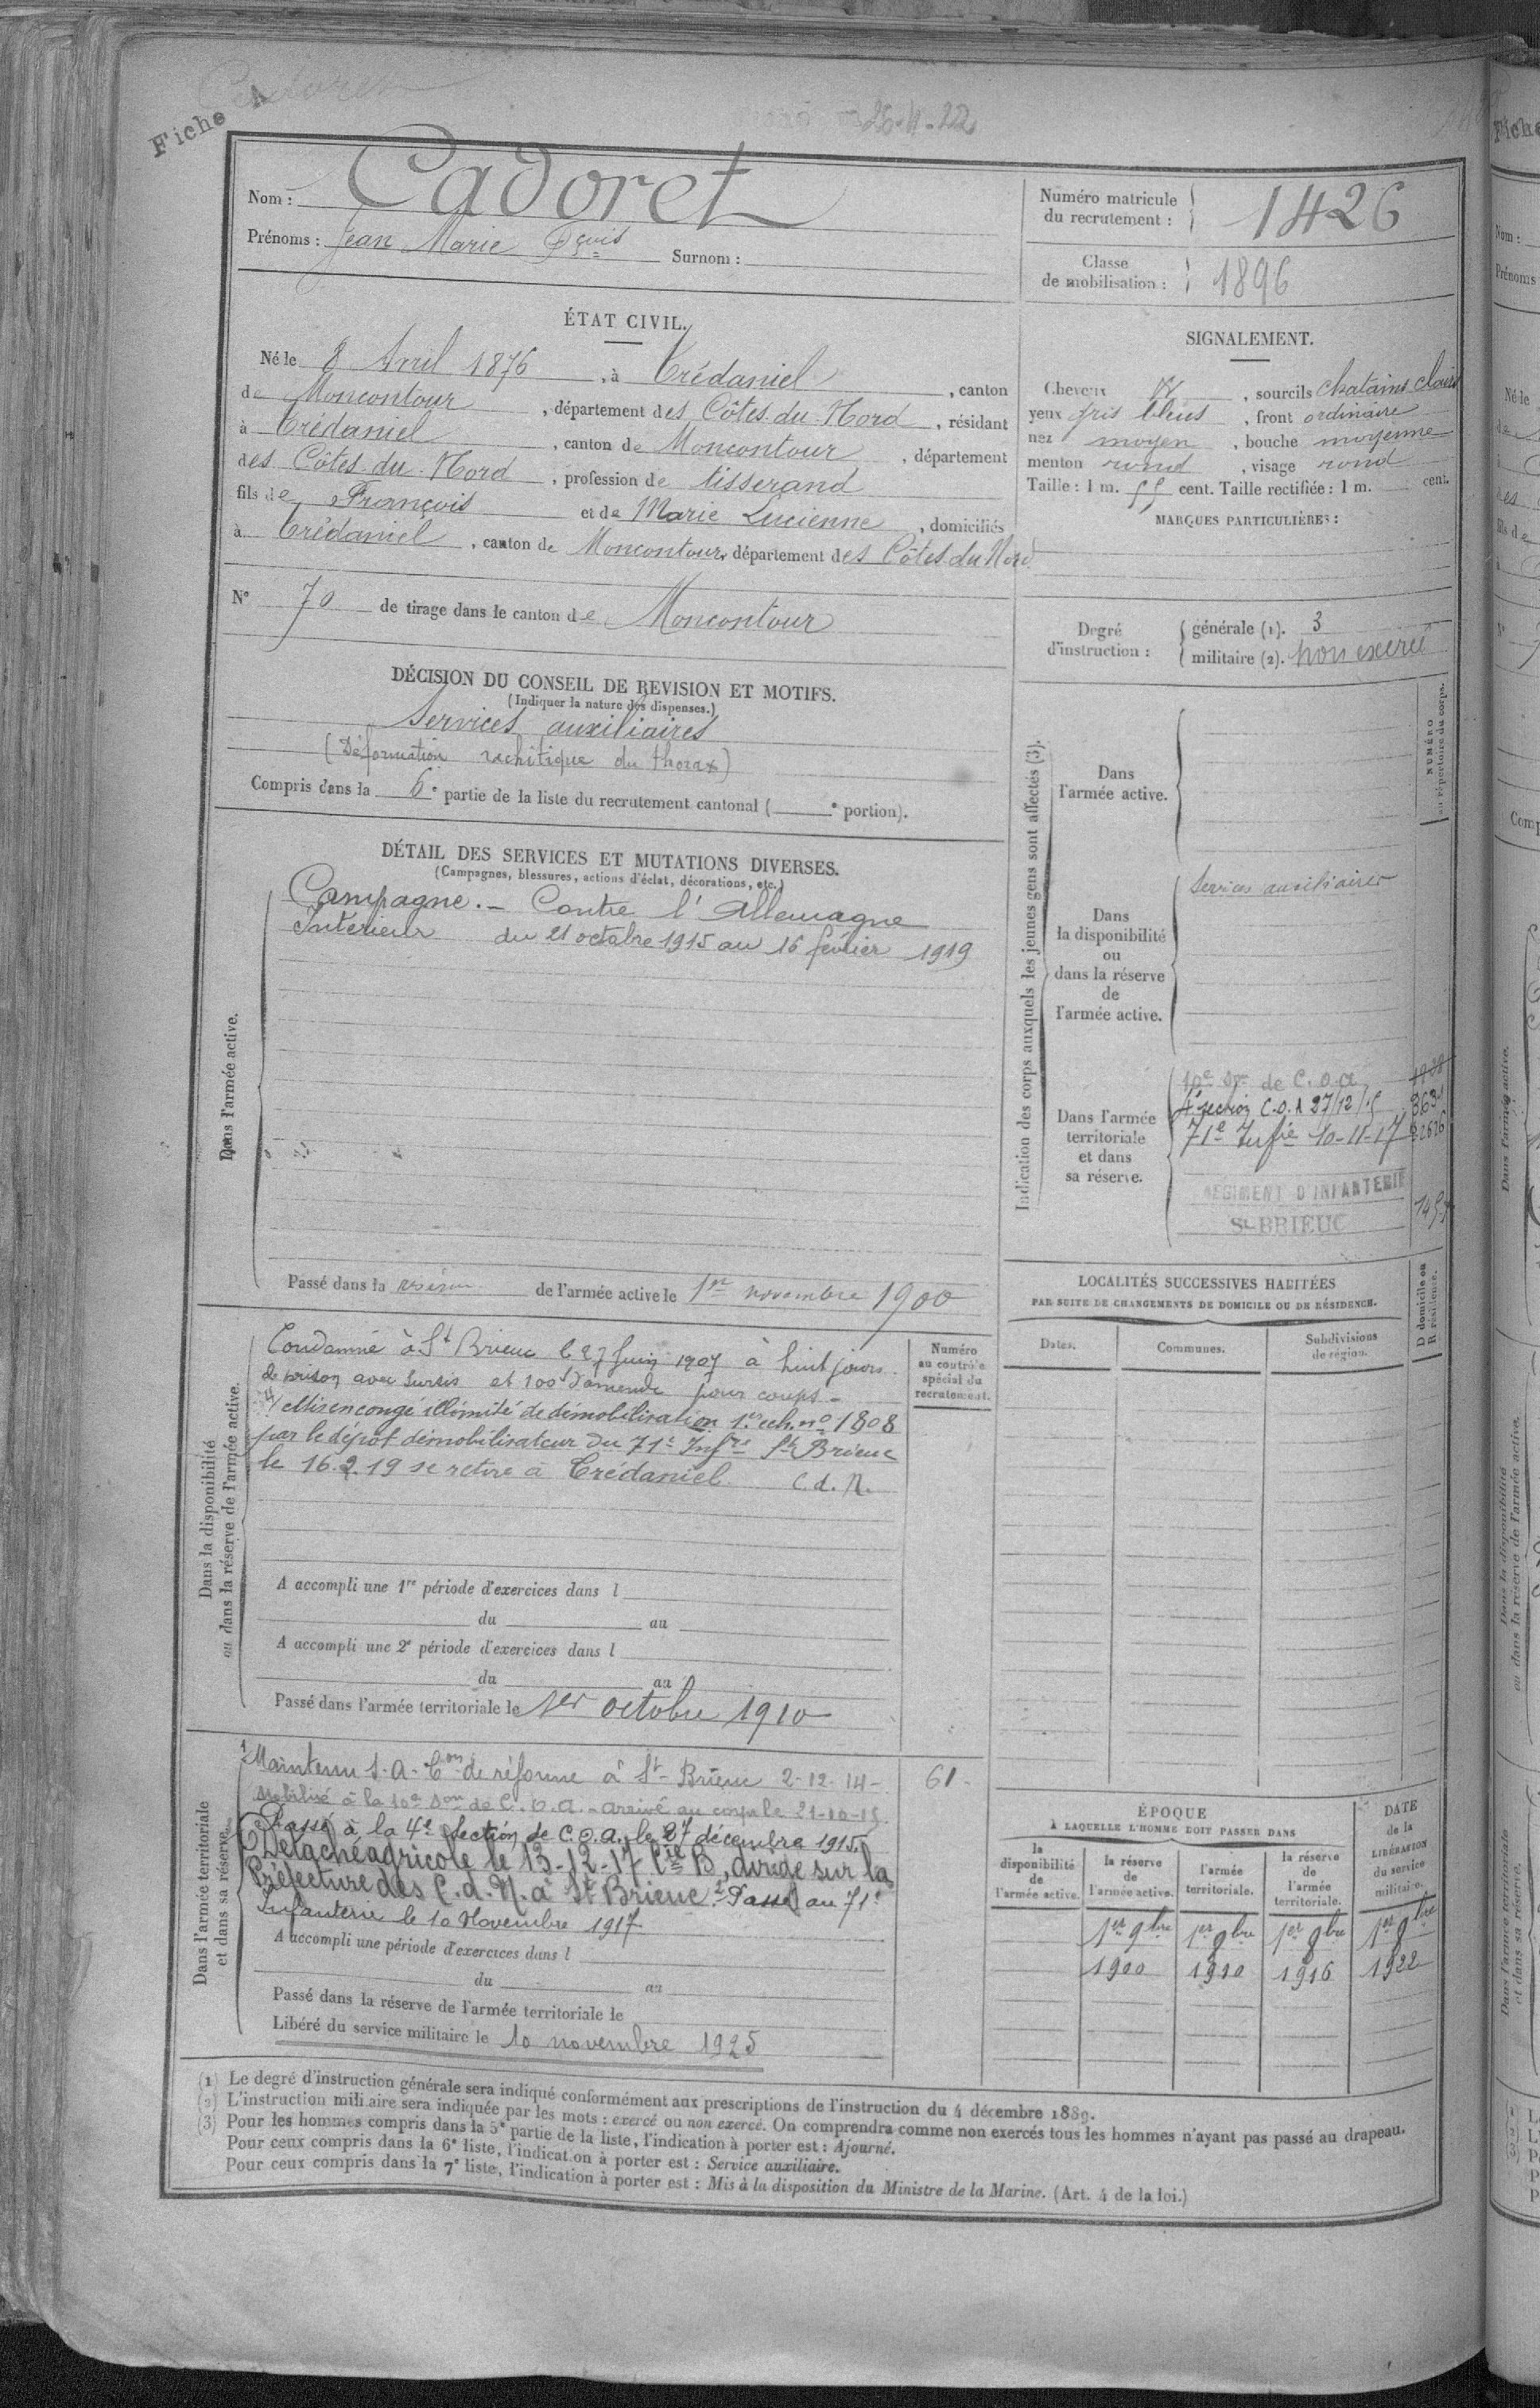 Fiche A
26-4-22
Nom : Cadoret
Prénoms : Jean Marie Fçois Surnom :
Numéro matricule du recrutement : 1426
Classe de mobilisation : 1896
ÉTAT CIVIL.
Né le 8 Avril 1876, à Trédaniel, canton
de Moncontour, département des Côtes du Nord, résidant
à Trédaniel, canton de Moncontour, département
des Côtes du Nord, profession de tisserand
fils de François et de Marie Lucienne, domiciliés
à Trédaniel, canton de Moncontour, département des Côtes du Nord
N° 70 de tirage dans le canton de Moncontour
SIGNALEMENT.
Cheveux, sourcils chatains clairs
yeux gris bleus, front ordinaire
nez moyen, bouche moyenne
menton rond, visage rond
Taille : 1 m. 55 cent. Taille rectifiée : 1 m. cent.
MARQUES PARTICULIÈRES :
Degré d'instruction : générale (1). 3
militaire (2). non exercé
DÉCISION DU CONSEIL DE REVISION ET MOTIFS.
(Indiquer la nature des dispenses.)
Services auxiliaires
(Déformation rachitique du thorax)
Compris dans la 6e partie de la liste du recrutement cantonal ( e portion).
DÉTAIL DES SERVICES ET MUTATIONS DIVERSES.
(Campagnes, blessures, actions d'éclat, décorations, etc.)
Dans l'armée active.
Campagne. - Contre l'Allemagne
Intérieur du 21 octobre 1915 au 16 février 1919
Passé dans la réserve de l'armée active le 1er novembre 1900
Indication des corps auxquels les jeunes gens sont affectés (3).
NUMÉRO au répertoire du corps.
Dans l'armée active.
Dans la disponibilité ou dans la réserve de l'armée active.
Services auxiliaires
Dans l'armée territoriale et dans sa réserve.
10e Son de C.O.A.
4e section C.O.A 27/12/15
71e Infie 10-11-17
RÉGIMENT D'INFANTERIE
St-BRIEUC
LOCALITÉS SUCCESSIVES HABITÉES
PAR SUITE DE CHANGEMENTS DE DOMICILE OU DE RÉSIDENCE.
Dates.
Communes.
Subdivisions de région.
D domicile ou R résidence.
Dans la disponibilité ou dans la réserve de l'armée active.
Numéro au contrôle spécial du recrutement.
Condamné à St Brieuc le 27 Juin 1907 à huit jours
de prison avec sursis et 100f d'amende pour coups -
Mis en congé illimité de démobilisation 1er ech. no 1808
par le dépôt démobilisateur du 71e Infrie St Brieuc
le 16.2.19 se retire à Trédaniel C.d.N.
A accompli une 1re période d'exercices dans l
du au
A accompli une 2e période d'exercices dans l
du au
Passé dans l'armée territoriale le 1er octobre 1910
Dans l'armée territoriale et dans sa réserve.
1 Maintenu S.A. Con de réforme à St-Brieuc 2-12-14- 61-
Mobilisé à la 10e Son de C.O.A. - arrivé au corps le 21-10-15
Passé à la 4e Section de C.O.A. le 27 décembre 1915.
Détaché agricole le 13-12-17 Cie B, dirigé sur la
Préfecture des C.d.N. à St Brieuc. 2 Passé au 71e
Infanterie le 10 Novembre 1917.
A accompli une période d'exercices dans l
du au
Passé dans la réserve de l'armée territoriale le
Libéré du service militaire le 10 novembre 1925
ÉPOQUE
À LAQUELLE L'HOMME DOIT PASSER DANS
la disponibilité de l'armée active.
la réserve de l'armée active.
l'armée territoriale.
la réserve de l'armée territoriale.
DATE de la LIBÉRATION du service militaire.
1er 9bre 1er 9bre 1er 9bre 1er 9bre
1900 1910 1916 1922
(1) Le degré d'instruction générale sera indiqué conformément aux prescriptions de l'instruction du 4 décembre 1889.
(2) L'instruction militaire sera indiquée par les mots : exercé ou non exercé. On comprendra comme non exercés tous les hommes n'ayant pas passé au drapeau.
(3) Pour les hommes compris dans la 5e partie de la liste, l'indication à porter est : Ajourné.
Pour ceux compris dans la 6e liste, l'indication à porter est : Service auxiliaire.
Pour ceux compris dans la 7e liste, l'indication à porter est : Mis à la disposition du Ministre de la Marine. (Art. 4 de la loi.)